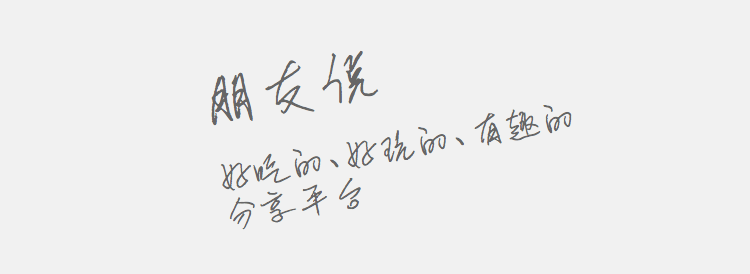 朋友说
好吃的、好玩的、有趣的
分享平台